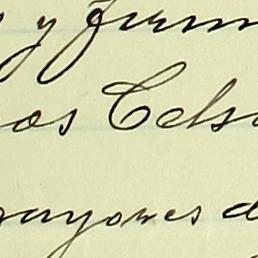 y firm
os Cels
mayores d